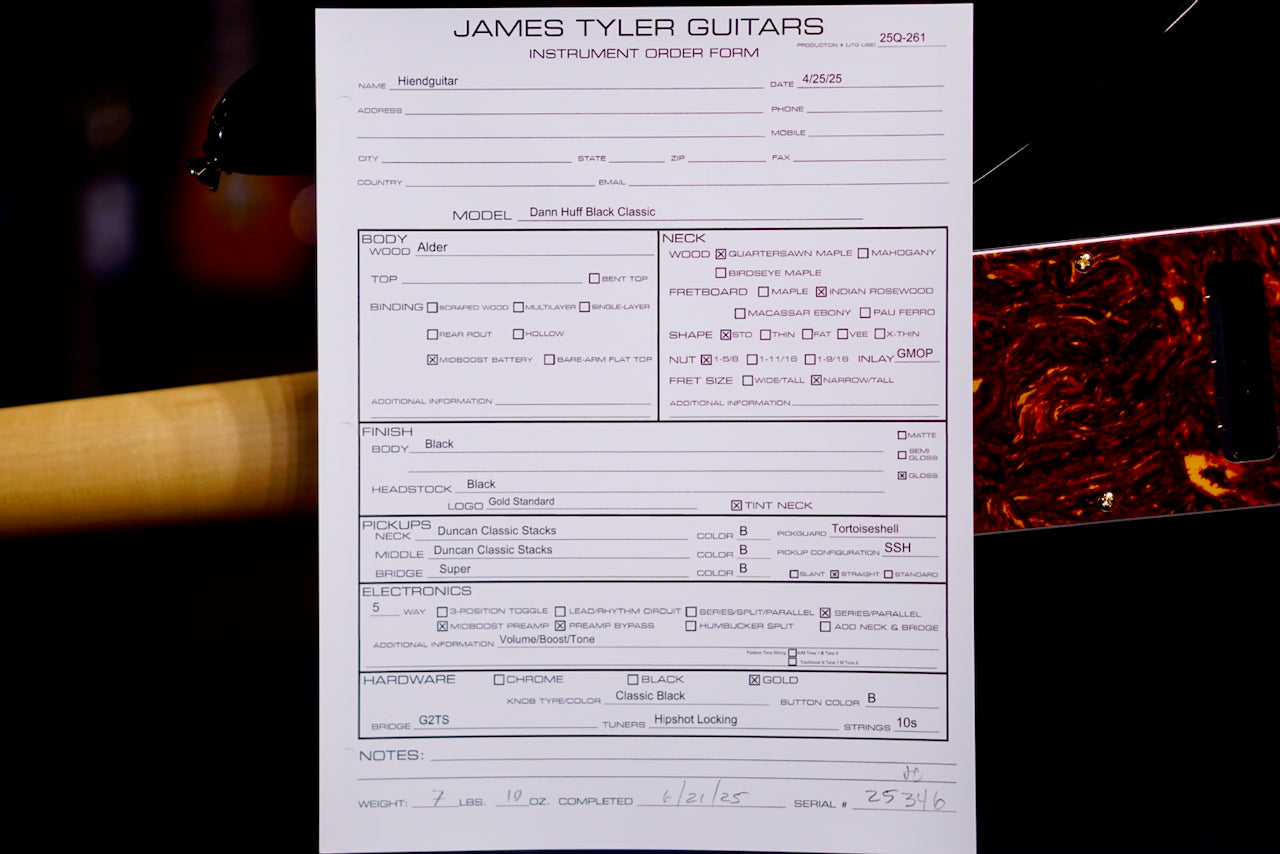 JAMES TYLER GUITARS
PRODUCTION # (JTG USE) 25Q-261
INSTRUMENT ORDER FORM
NAME Hiendguitar DATE 4/25/25
ADDRESS PHONE
MOBILE
CITY STATE ZIP FAX
COUNTRY EMAIL
MODEL Dann Huff Black Classic
BODY
WOOD Alder
TOP ☐ BENT TOP
BINDING ☐ SCRAPED WOOD ☐ MULTILAYER ☐ SINGLE-LAYER
☐ REAR ROUT ☐ HOLLOW
☒ MIDBOOST BATTERY ☐ BARE-ARM FLAT TOP
ADDITIONAL INFORMATION
NECK
WOOD ☒ QUARTERSAWN MAPLE ☐ MAHOGANY
☐ BIRDSEYE MAPLE
FRETBOARD ☐ MAPLE ☒ INDIAN ROSEWOOD
☐ MACASSAR EBONY ☐ PAU FERRO
SHAPE ☒ STD ☐ THIN ☐ FAT ☐ VEE ☐ X-THIN
NUT ☒ 1-5/8 ☐ 1-11/16 ☐ 1-9/16 INLAY GMOP
FRET SIZE ☐ WIDE/TALL ☒ NARROW/TALL
ADDITIONAL INFORMATION
FINISH
BODY Black
☐ MATTE
☐ SEMI GLOSS
☒ GLOSS
HEADSTOCK Black
LOGO Gold Standard ☒ TINT NECK
PICKUPS
NECK Duncan Classic Stacks COLOR B PICKGUARD Tortoiseshell
MIDDLE Duncan Classic Stacks COLOR B PICKUP CONFIGURATION SSH
BRIDGE Super COLOR B ☐ SLANT ☒ STRAIGHT ☐ STANDARD
ELECTRONICS
5 WAY ☐ 3-POSITION TOGGLE ☐ LEAD/RHYTHM CIRCUIT ☐ SERIES/SPLIT/PARALLEL ☒ SERIES/PARALLEL
☒ MIDBOOST PREAMP ☒ PREAMP BYPASS ☐ HUMBUCKER SPLIT ☐ ADD NECK & BRIDGE
ADDITIONAL INFORMATION Volume/Boost/Tone
Passive Tone Wiring ☐ N/M Tone 1 B Tone 2
☐ Traditional N Tone 1 M Tone 2
HARDWARE ☐ CHROME ☐ BLACK ☒ GOLD
KNOB TYPE/COLOR Classic Black BUTTON COLOR B
BRIDGE G2TS TUNERS Hipshot Locking STRINGS 10s
NOTES:
WEIGHT: 7 LBS. 10 OZ. COMPLETED 6/21/25 SERIAL # 25346